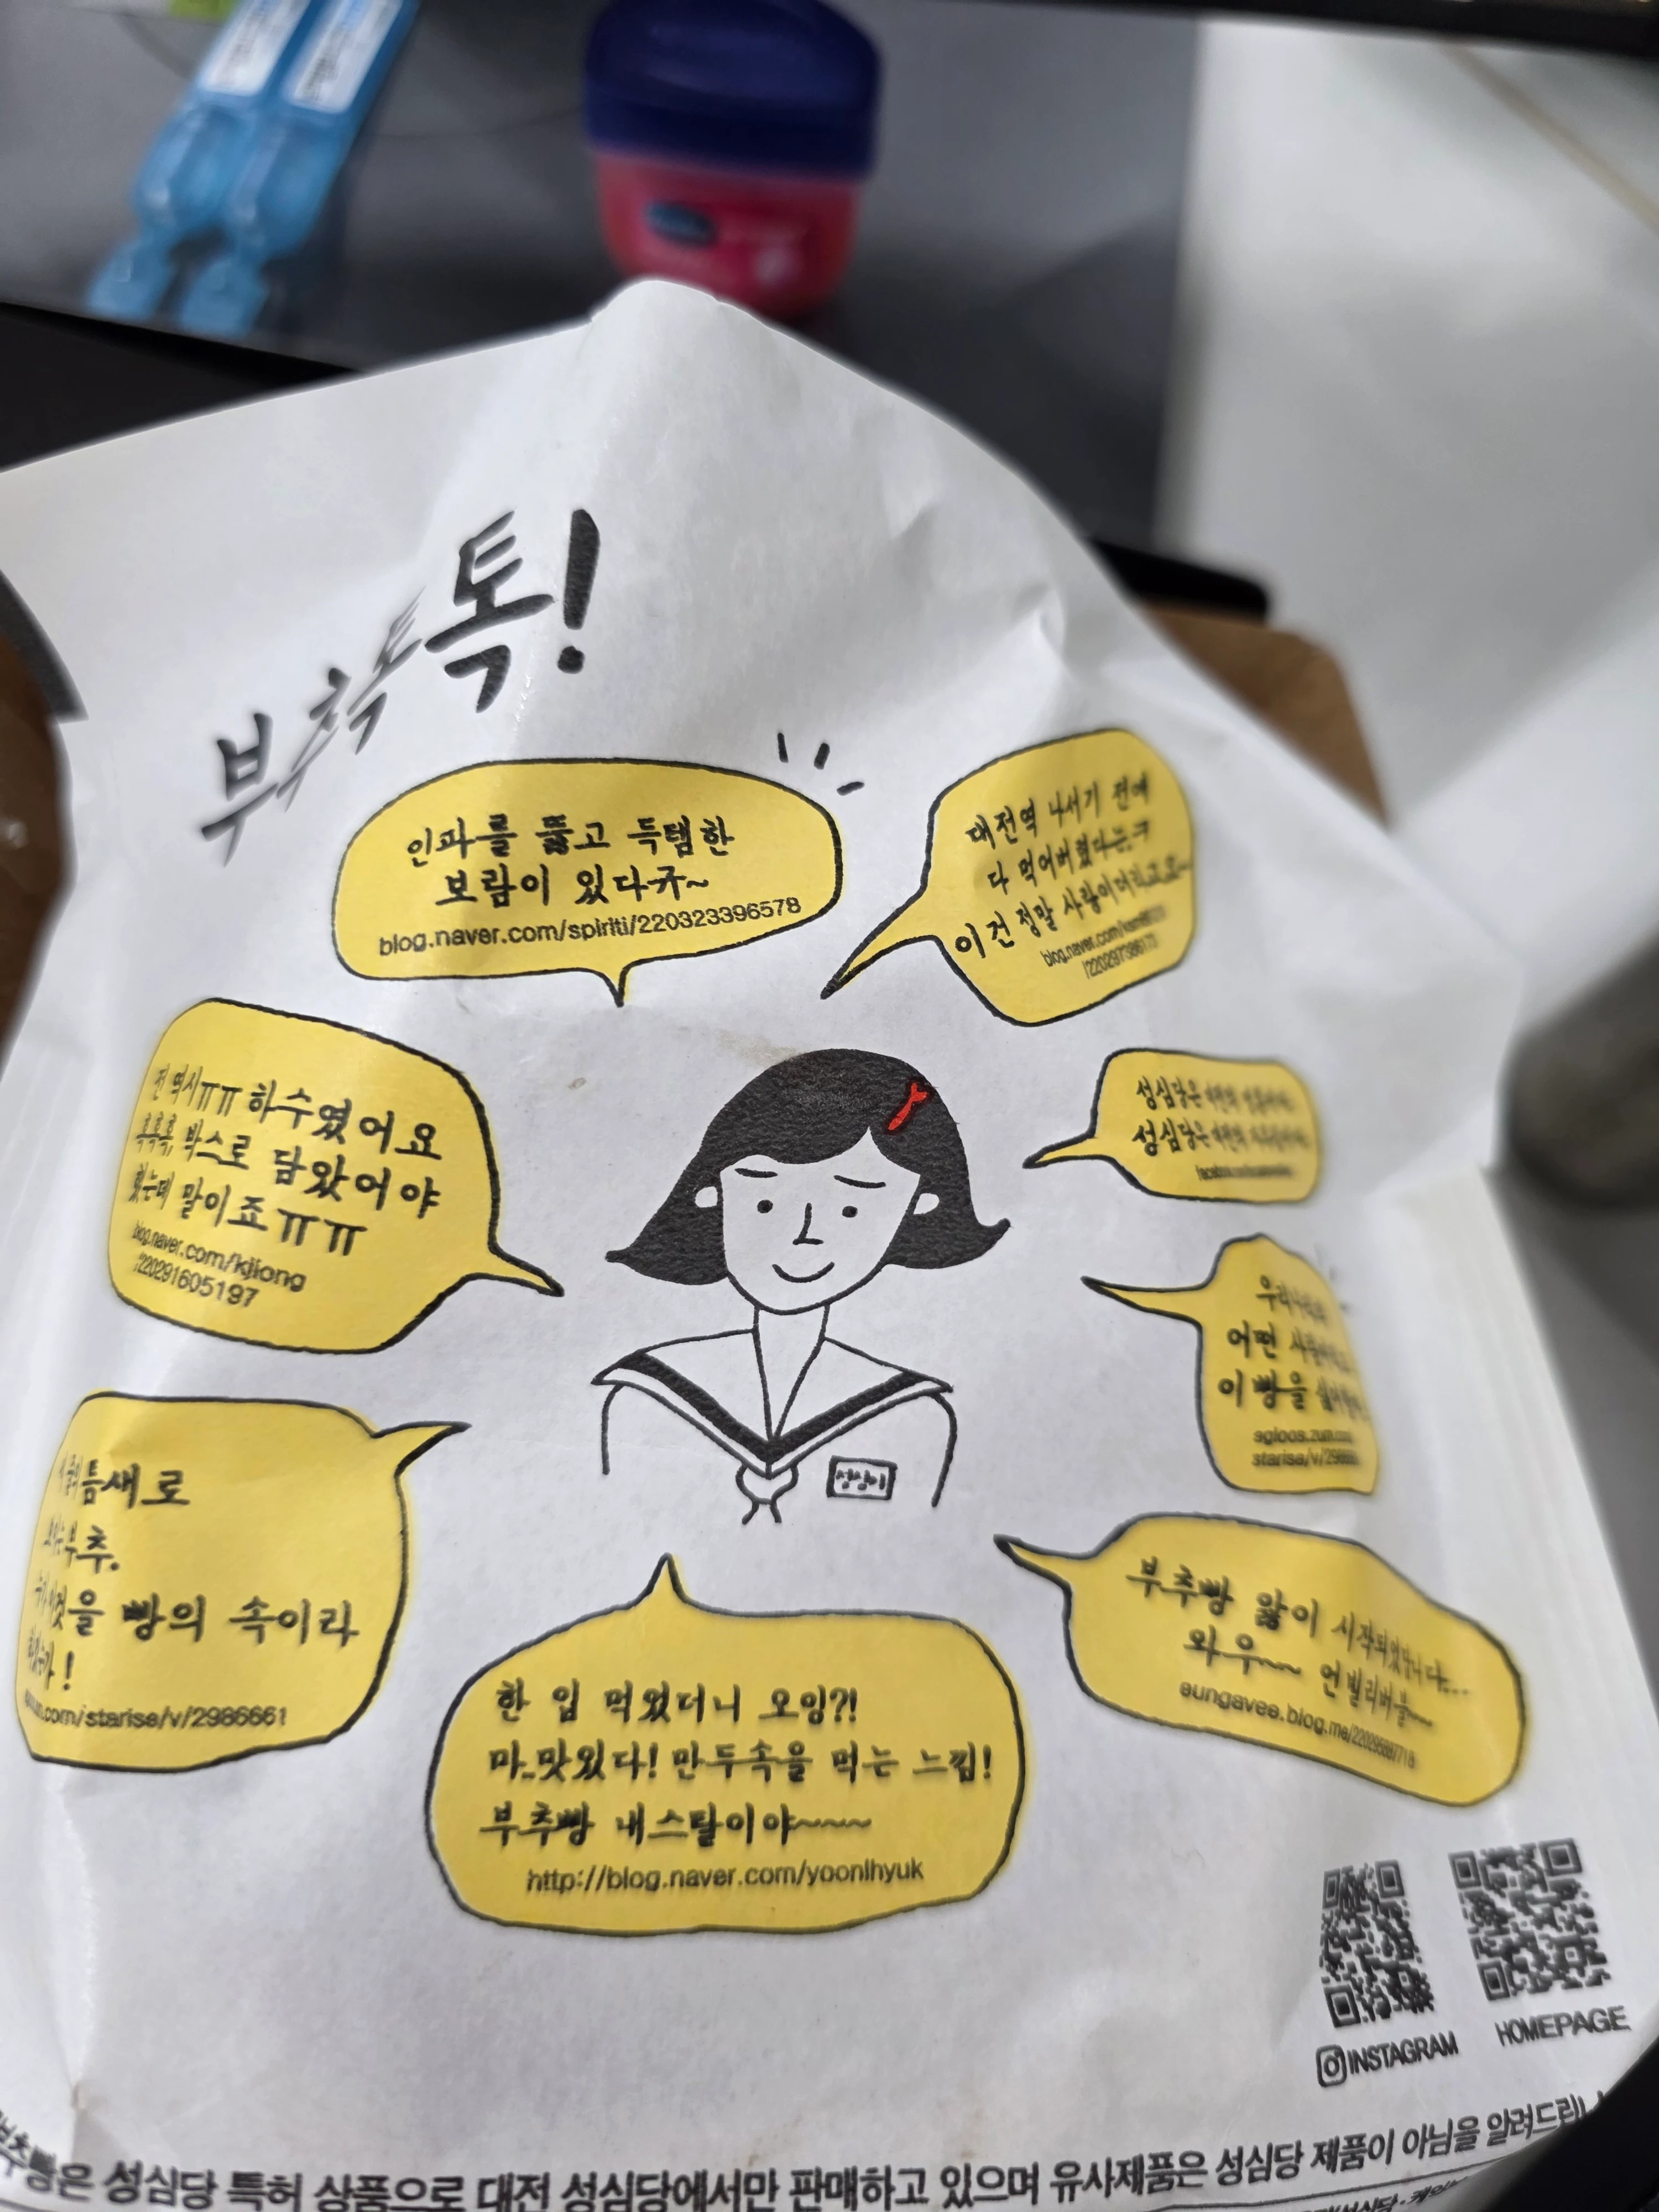 부추톡톡!
인파를 뚫고 득템한
보람이 있다ㅠ~
blog.naver.com/spiriti/220323396578
대전역 나서기 전에
다 먹어버렸다는.ㅋ
이건 정말 사랑이더라고요~
blog.naver.com
전 역시ㅠㅠ 하수였어요
흑흑흑, 박스로 담았어야
했는데 말이죠ㅠㅠ
blog.naver.com/kjiong
/220291605197
성심당은
성심당은
어떤
이 빵을
egloos.zum.com
starisa/v/2986661
틈새로
보이는 부추.
누가 이것을 빵의 속이라
했는가!
zum.com/starisa/v/2986661
성심이
부추빵 앓이 시작되었답니다...
와우~~ 언빌리버블~~
eungavee.blog.me
한 입 먹었더니 오잉?!
마..맛있다! 만두속을 먹는 느낌!
부추빵 내스탈이야~~~~
http://blog.naver.com/yoonlhyuk
INSTAGRAM
HOMEPAGE
부추빵은 성심당 특허 상품으로 대전 성심당에서만 판매하고 있으며 유사제품은 성심당 제품이 아님을 알려드립니